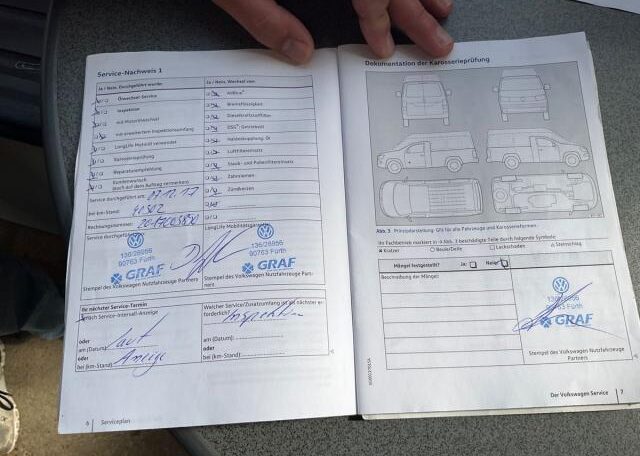 Service-Nachweis 1
Ja / Nein, Durchgeführt wurde:
Ölwechsel-Service
Inspektion
mit Motorölwechsel
mit erweitertem Inspektionsumfang
LongLife Motoröl verwendet
Karosserieprüfung
Reparaturempfehlung
(auch auf dem Auftrag vermerken)
Service durchgeführt am:
Bei km-Stand:
Rechnungsnummer:
Service durchgeführt
136/28956
90763 Fürth
GRAF
Stempel des Volkswagen Nutzfahrzeuge Partners
Ja / Nein, Wechsel von:
AdBlue®
Bremsflüssigkeit
Dieselkraftstofffilter
DSG®; Getriebeöl
Luftfiltereinsatz
Staub- und Pollenfiltereinsatz
Zahnriemen
Zündkerzen
LongLife Mobilitätsgarantie
136/28956
90763 Fürth
GRAF
Stempel des Volkswagen Nutzfahrzeuge Partners
Ihr nächster Service-Termin
nach Service-Intervall-Anzeige
oder
am (Datum)
oder
bei (km-Stand)
laut
Anzeige
Welcher Service/Zusatzumfang ist als nächster erforderlich?
Inspektion
am (Datum):
oder
bei (km-Stand):
6 Serviceplan
Dokumentation der Karosserieprüfung
Abb. 3 Prinzipdarstellung: Gilt für alle Fahrzeuge und Karosserieformen.
Ihr Fachbetrieb markiert in Abb. 3 beschädigte Teile durch folgende Symbole:
Kratzer
Beule/Delle
Lackschaden
Steinschlag
Mängel festgestellt?
Ja:
Nein:
Beschreibung der Mängel:
136/28956
90763 Fürth
GRAF
Stempel des Volkswagen Nutzfahrzeuge Partners
Der Volkswagen Service 7